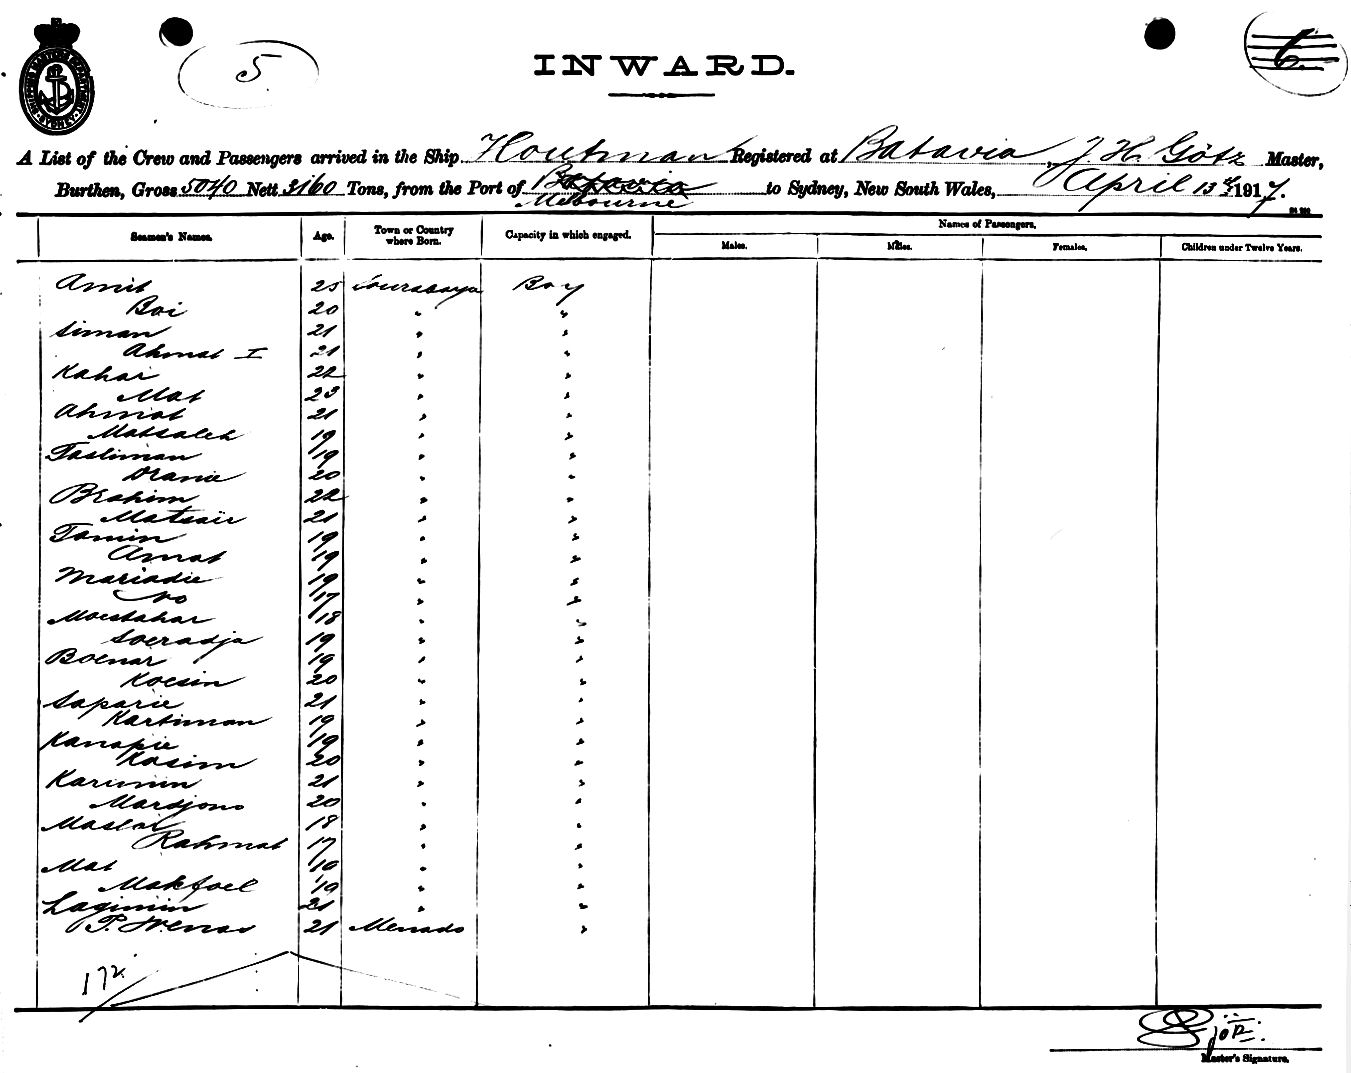 5.
6.
INWARD.
A List of the Crew and Passengers arrived in the Ship Houtman Registered at Batavia, J. H. Götz Master,
Burthen, Gross 5040 Nett 3160 Tons, from the Port of Batavia to Sydney, New South Wales, April 13th 1917.
Melbourne
Seamen's Names. Age. Town or Country where Born. Capacity in which engaged. Names of Passengers.
Males. Males. Females. Children under Twelve Years.
Amit 25 Sourabaya Boy
Boi 20 " "
Siman 21 " "
Ahmat I 21 " "
Kahar 22 " "
Mat 23 " "
Ahmat 21 " "
Matsaleh 19 " "
Tasliman 19 " "
Dranie 20 " "
Brahim 22 " "
Matsaïr 21 " "
Tamin 19 " "
Amat 19 " "
Mariadie 19 " "
No 17 " "
Moestahar 18 " "
Soeradja 19 " "
Boenar 19 " "
Koesin 20 " "
Saparie 21 " "
Kartiman 19 " "
Kanapie 19 " "
Kasim 20 " "
Karimin 21 " "
Mardjono 20 " "
18 " "
Rahmat 17 " "
Mat 19 " "
Makfoel 19 " "
Lagimin 21 " "
P. Wenas 21 Menado "
172
Master's Signature.